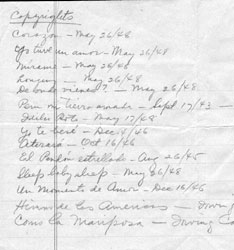 Copyrights
Corazon - May 26/48
Yo tuve un amor - May 26/48
Mirame - May 26/48
Longing - May 26/48
De donde vienes? - May 26/48
Para mi tierra amada - Sept 17/43 -
Dulce Bote - May 17/48
Yo te besé - Dec 4/46
Oct 16/46
El Peñon estrellado - Aug 26/45
Sleep baby sleep - May 26/48
Un Momento de Amor - Dec 16/46
Himno de las Americas - Irving
Como la Mariposa - Irving Ca